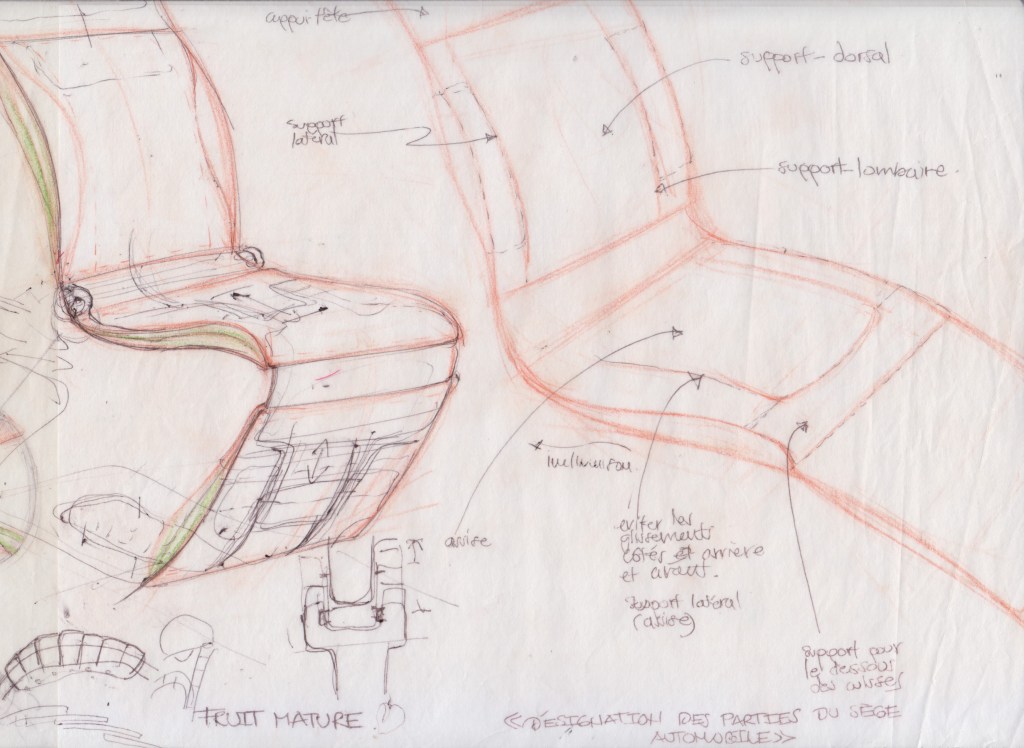 appui tête
support-dorsal
support
latéral
support-lombaire.
inclinaison
assise
eviter les
glissements
côtés et arrière
et avant.
support latéral
(assise)
support pour
le dessous
des cuisses
FRUIT MATURE
<<DÉSIGNATION DES PARTIES DU SIÈGE
AUTOMOBILE>>